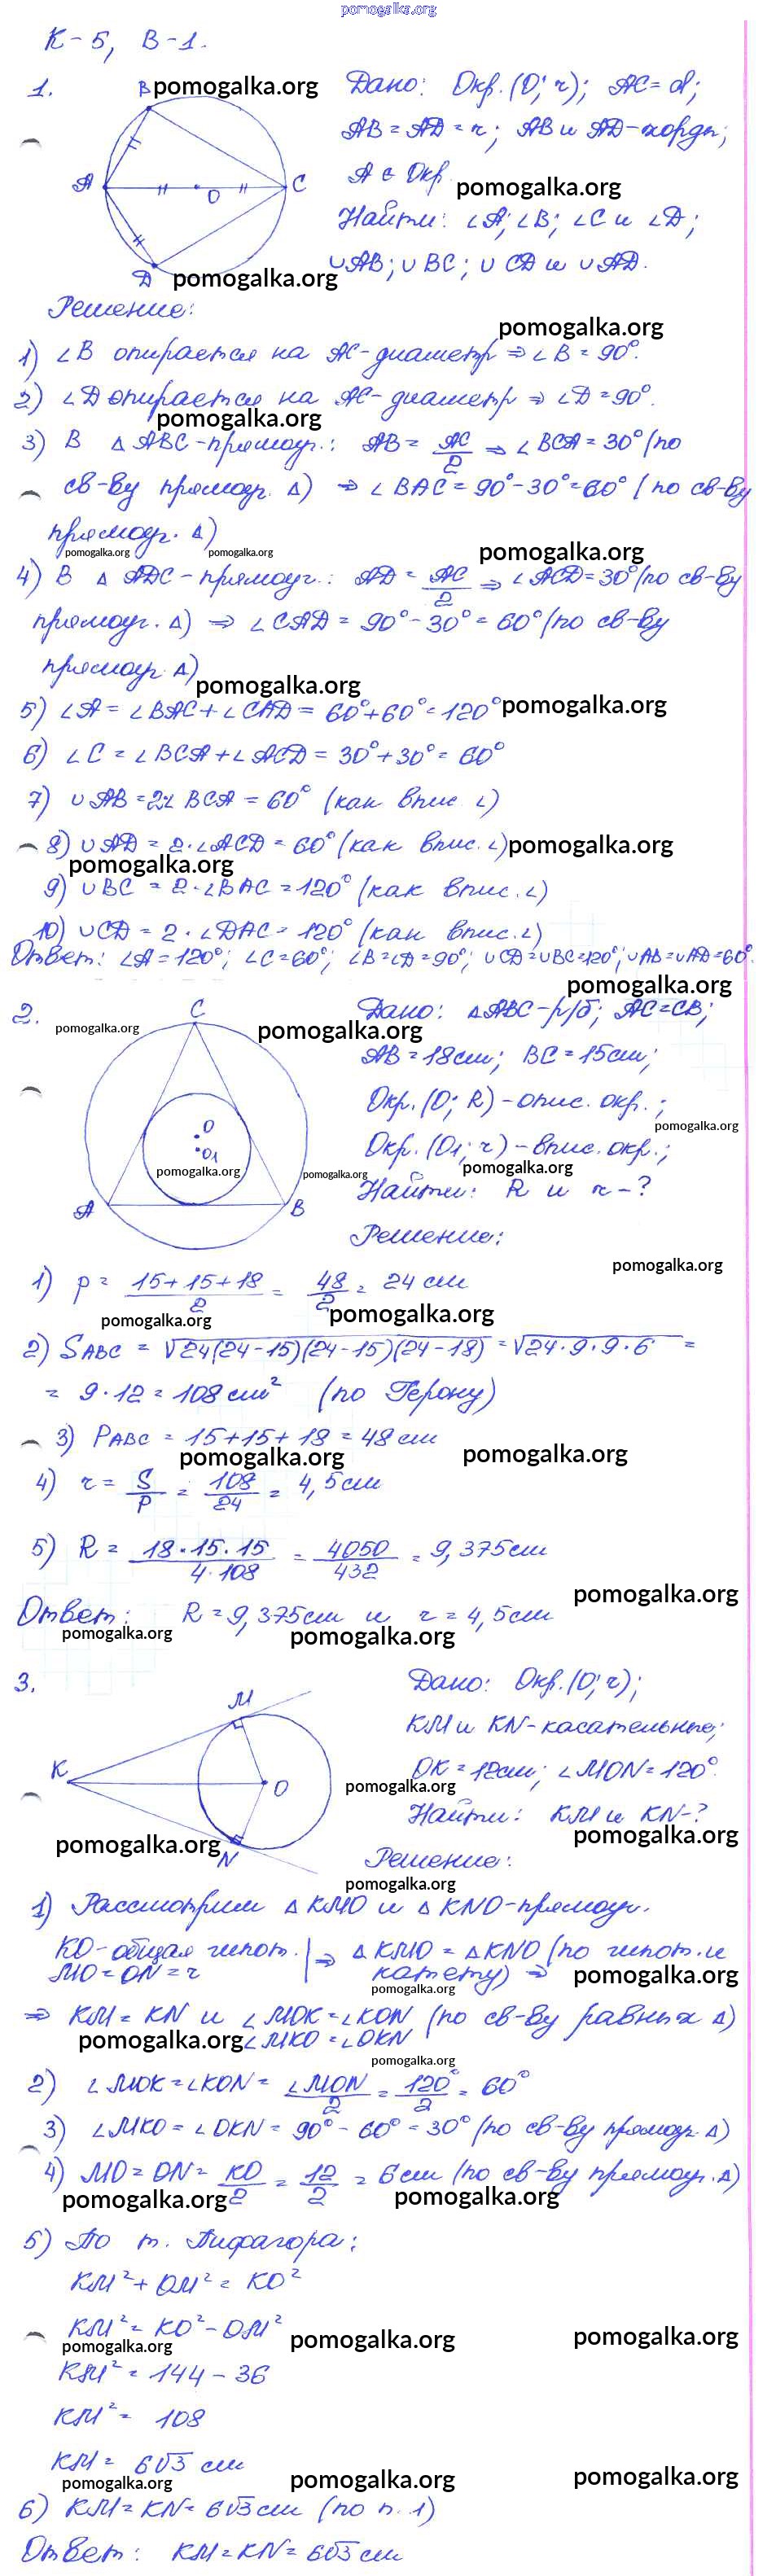 pomogalka.org
К-5, В-1.
1. B pomogalka.org Дано: Окр.(O; r); AC=d;
AB=AD=r; AB и AD-хорды;
A C O A ∈ Окр. pomogalka.org
Найти: ∠A; ∠B; ∠C и ∠D;
D pomogalka.org ∪AB; ∪BC; ∪CD и ∪AD.
Решение:
pomogalka.org
1) ∠B опирается на AC-диаметр ⇒ ∠B = 90°.
2) ∠D опирается на AC-диаметр ⇒ ∠D = 90°.
pomogalka.org
3) В △ABC-прямоуг.: AB = AC/2 ⇒ ∠BCA = 30° (по
св-ву прямоуг. △) ⇒ ∠BAC = 90°-30°=60° (по св-ву
прямоуг. △)
pomogalka.org pomogalka.org pomogalka.org
4) В △ADC-прямоуг.: AD = AC/2 ⇒ ∠ACD=30° (по св-ву
прямоуг. △) ⇒ ∠CAD = 90°-30° = 60° (по св-ву
прямоуг. △)
pomogalka.org
5) ∠A = ∠BAC+∠CAD = 60°+60°=120° pomogalka.org
6) ∠C = ∠BCA+∠ACD = 30°+30° = 60°
7) ∪AB=2∠BCA = 60° (как впис. ∠)
8) ∪AD = 2·∠ACD = 60° (как впис. ∠) pomogalka.org
pomogalka.org
9) ∪BC = 2·∠BAC = 120° (как впис. ∠)
10) ∪CD = 2·∠DAC = 120° (как впис. ∠)
Ответ: ∠A=120°; ∠C=60°; ∠B=∠D=90°; ∪CD=∪BC=120°; ∪AB=∪AD=60°.
pomogalka.org
2. C Дано: △ABC-р/б; AC=CB;
pomogalka.org pomogalka.org
AB=18см; BC=15см;
Окр.(O; R)-опис. окр.;
O pomogalka.org
O1 Окр.(O1; r)-впис. окр.;
pomogalka.org pomogalka.org pomogalka.org
A B Найти: R и r-?
Решение:
pomogalka.org
1) p = 15+15+18/2 = 48/2 = 24 см
pomogalka.org pomogalka.org
2) SABC = √24(24-15)(24-15)(24-18) = √24·9·9·6 =
= 9·12 = 108 см² (по Герону)
3) PABC = 15+15+18 = 48 см
pomogalka.org pomogalka.org
4) r = S/p = 108/24 = 4,5см
5) R = 18·15·15/4·108 = 4050/432 = 9,375см
pomogalka.org
Ответ: R = 9,375см и r = 4,5см
pomogalka.org pomogalka.org
3. Дано: Окр.(O; r);
M KM и KN-касательные;
K O OK=12см; ∠MON=120°.
pomogalka.org
Найти: KM и KN-?
pomogalka.org pomogalka.org
N Решение:
pomogalka.org
1) Рассмотрим △KMO и △KNO-прямоуг.
KO-общая гипот. ⇒ △KMO = △KNO (по гипот. и
MO=ON=r катету) ⇒ pomogalka.org
pomogalka.org
⇒ KM = KN и ∠MOK=∠KON (по св-ву равных △)
pomogalka.org ∠MKO=∠OKN
pomogalka.org
2) ∠MOK=∠KON = ∠MON/2 = 120°/2 = 60°
3) ∠MKO=∠OKN = 90°-60° = 30° (по св-ву прямоуг. △)
4) MO=ON= KO/2 = 12/2 = 6см (по св-ву прямоуг. △)
pomogalka.org pomogalka.org
5) По т. Пифагора:
KM²+OM² = KO²
KM² = KO²-OM²
pomogalka.org pomogalka.org pomogalka.org
KM² = 144-36
KM² = 108
KM = 6√3 см
pomogalka.org pomogalka.org pomogalka.org
6) KM=KN=6√3см (по п. 1)
Ответ: KM=KN=6√3см